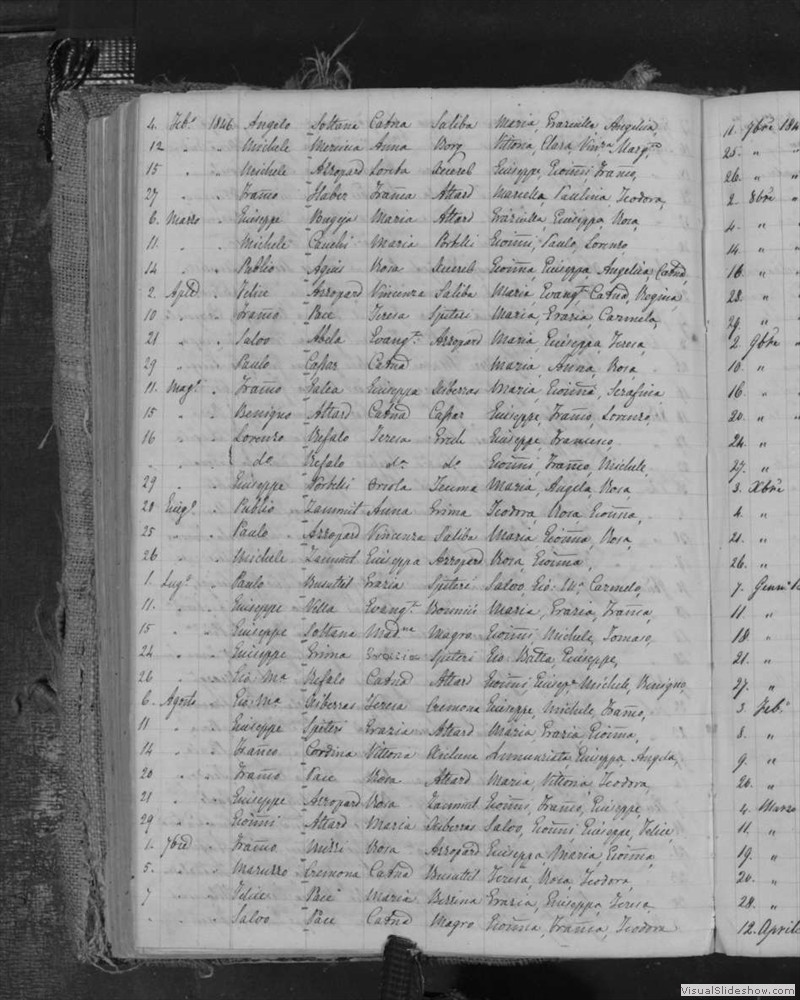 4. Feb.o 1846 Angelo Soltana Catna Saliba Maria, Graziella, Angelica,
12 " . Michele Mercieca Anna Borg Vittoria, Clara, Vinza Marg.ta
15 . . Michele Azzopard Loreta Xuereb Giuseppe, Gioinni, Franco,
27 . . Franco Haber Franca Attard Marcella, Paulina, Teodora,
6. Marzo . Giuseppe Bugeja Maria Attard Graziella, Giuseppa, Rosa,
11. . . Michele Cauchi Maria Portelli Gioinni, Paulo, Lorenzo,
14 . . Publio Agius Rosa Xuereb Gioinna, Giuseppa, Angelica, Catna,
2. Aple . Felice Azzopard Vincenza Saliba Maria, Evang.ta Catna, Regina,
10 . . Franco Pace Teresa Spiteri Maria, Grazia, Carmela,
21 . . Salvo Abela Evang.ta Azzopard Maria, Giuseppa, Teresa,
29 . . Paulo Caspar Catna Maria, Anna, Rosa
11. Mag.o . Franco Galea Giuseppa Xiberras Maria, Gioinna, Serafina
15 . . Benigno Attard Catna Caspar Giuseppe, Franco, Lorenzo,
16 . . Lorenzo Refalo Teresa Grech Giuseppe, Francesco
. . . do Refalo do do Gioinni, Franco, Michele,
29 . . Giuseppe Portelli Orsola Teuma Maria, Angela, Rosa,
20 Giug.o . Publio Zammit Anna Grima Teodora, Rosa, Gioinna,
25 . . Paulo Azzopard Vincenza Saliba Maria, Gioinna, Rosa,
26 . . Michele Zammit Giuseppa Azzopard Rosa, Gioinna,
1. Lug.o . Paulo Busuttil Grazia Spiteri Salvo, Gio: Ma, Carmelo,
11. . . Giuseppe Vella Evang.ta Bonnici Maria, Grazia, Franca,
15 . . Giuseppe Soltana Mad.na Magro Gioinni, Michele, Tomaso,
24 . . Giuseppe Grima Grazia Spiteri Gio Batta, Giuseppe,
26 . . Gio Ma Refalo Catna Attard Gioinni, Giusep.e Michele, Benigno,
6. Agosto . Gio: Ma Xiberras Teresa Cremona Giuseppe, Michele, Franco,
11 . . Giuseppe Spiteri Grazia Attard Maria, Grazia, Gioinna,
14 . . Franco Cordina Vittoria Axelura Annunziata, Giuseppa, Angela,
20 . . Franco Pace Rosa Attard Maria, Vittoria, Teodora,
21 . . Giuseppe Azzopard Rosa Zammit Gioinni, Franco, Giuseppe,
29 . . Gioinni Attard Maria Xiberras Salvo, Gioinni, Giuseppe, Felice,
1. 7bre . Franco Rosa Azzopard Giuseppa, Maria, Gioinna,
5. . . Maruzzo Cremona Catna Busuttil Teresa, Rosa, Teodora,
7 . . Felice Pace Maria Grazia, Giuseppa, Teresa,
. . . Salvo Pace Catna Magro Gioinna, Franca, Teodora
11. 7bre 184
25. " "
26. " "
2. 8bre "
4. " "
14. " "
16. " "
28. " "
29. " "
2. 9bre "
10. " "
16. " "
20. " "
24. "
27. "
3. Xbre
4. "
21. "
26. "
7. Genn.o 1
11. "
18. "
21. "
27. "
3. Feb.o
8. "
9. "
26. "
4. Marzo
11. "
19. "
20. "
28. "
12. Aprile
VisualSlideshow.com